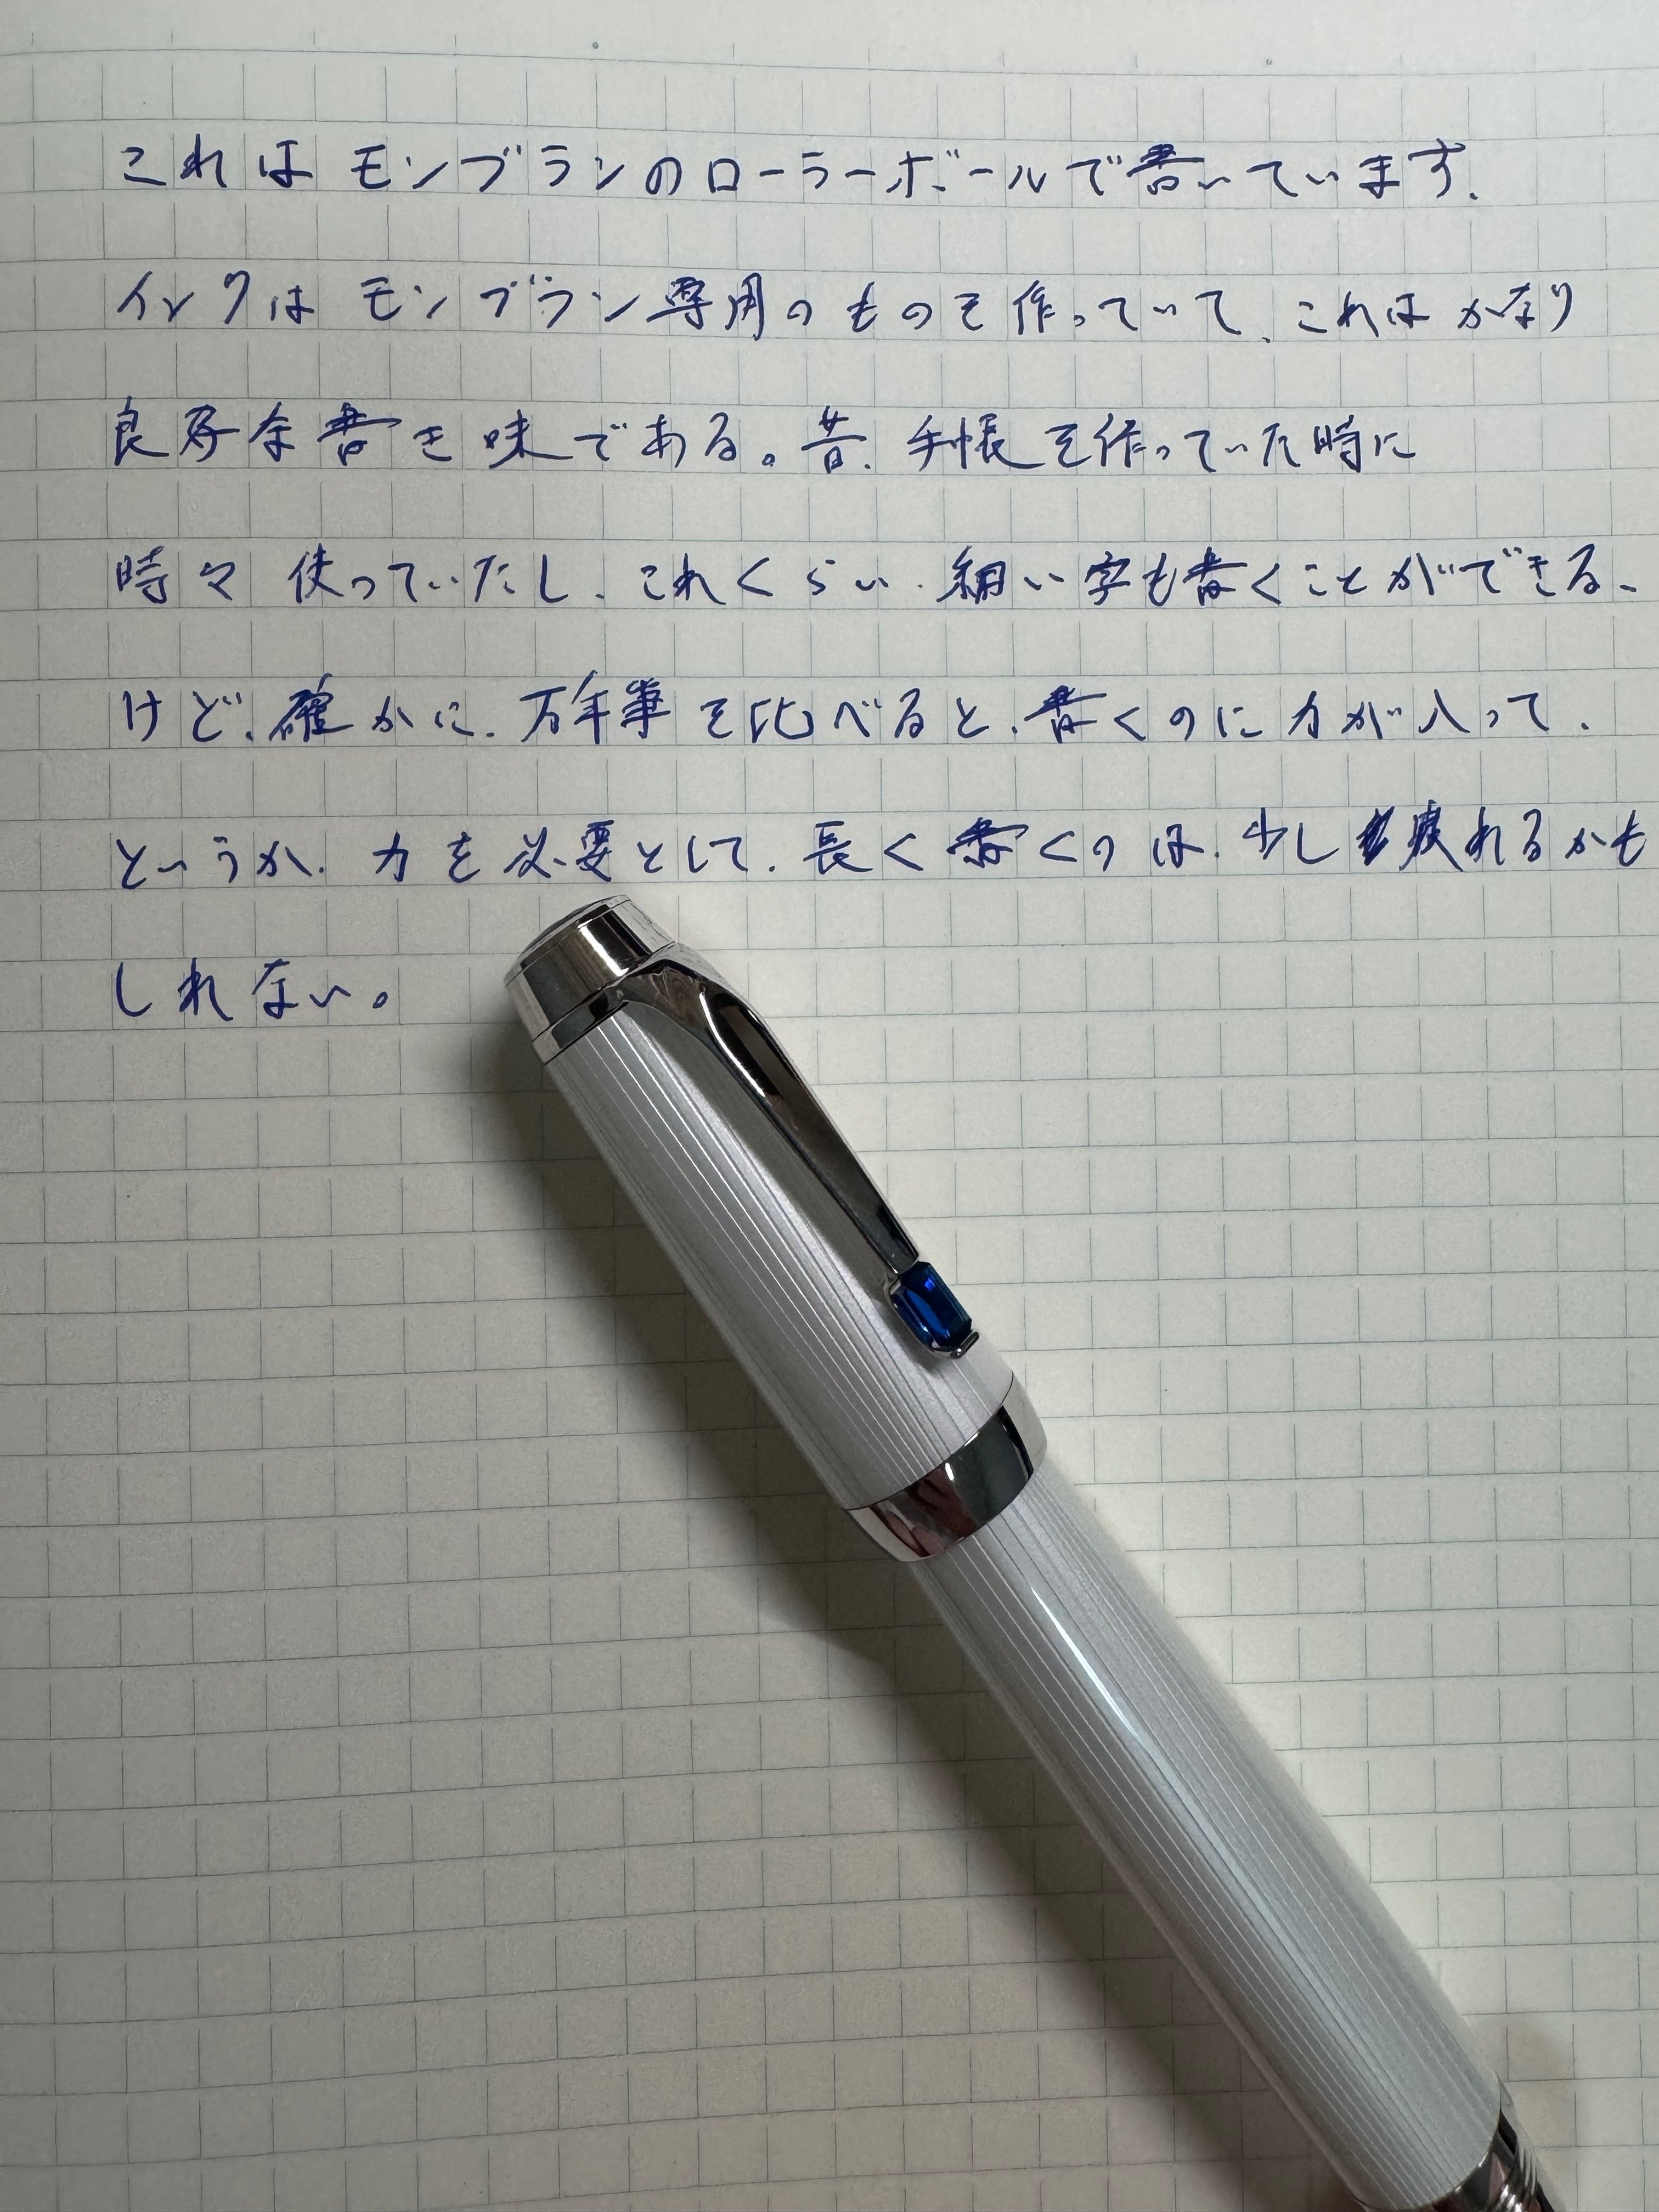 これはモンブランのローラーボールで書いています.
インクはモンブラン専用のものを作っていて、これはかなり
良好な書き味である。昔、手帳を作っていた時に
時々使っていたし、これくらい、細い字も書くことができる、
けど、確かに、万年筆を比べると、書くのに力が入って、
というか、力を必要として、長く書くのは、少し疲れるかも
しれない。